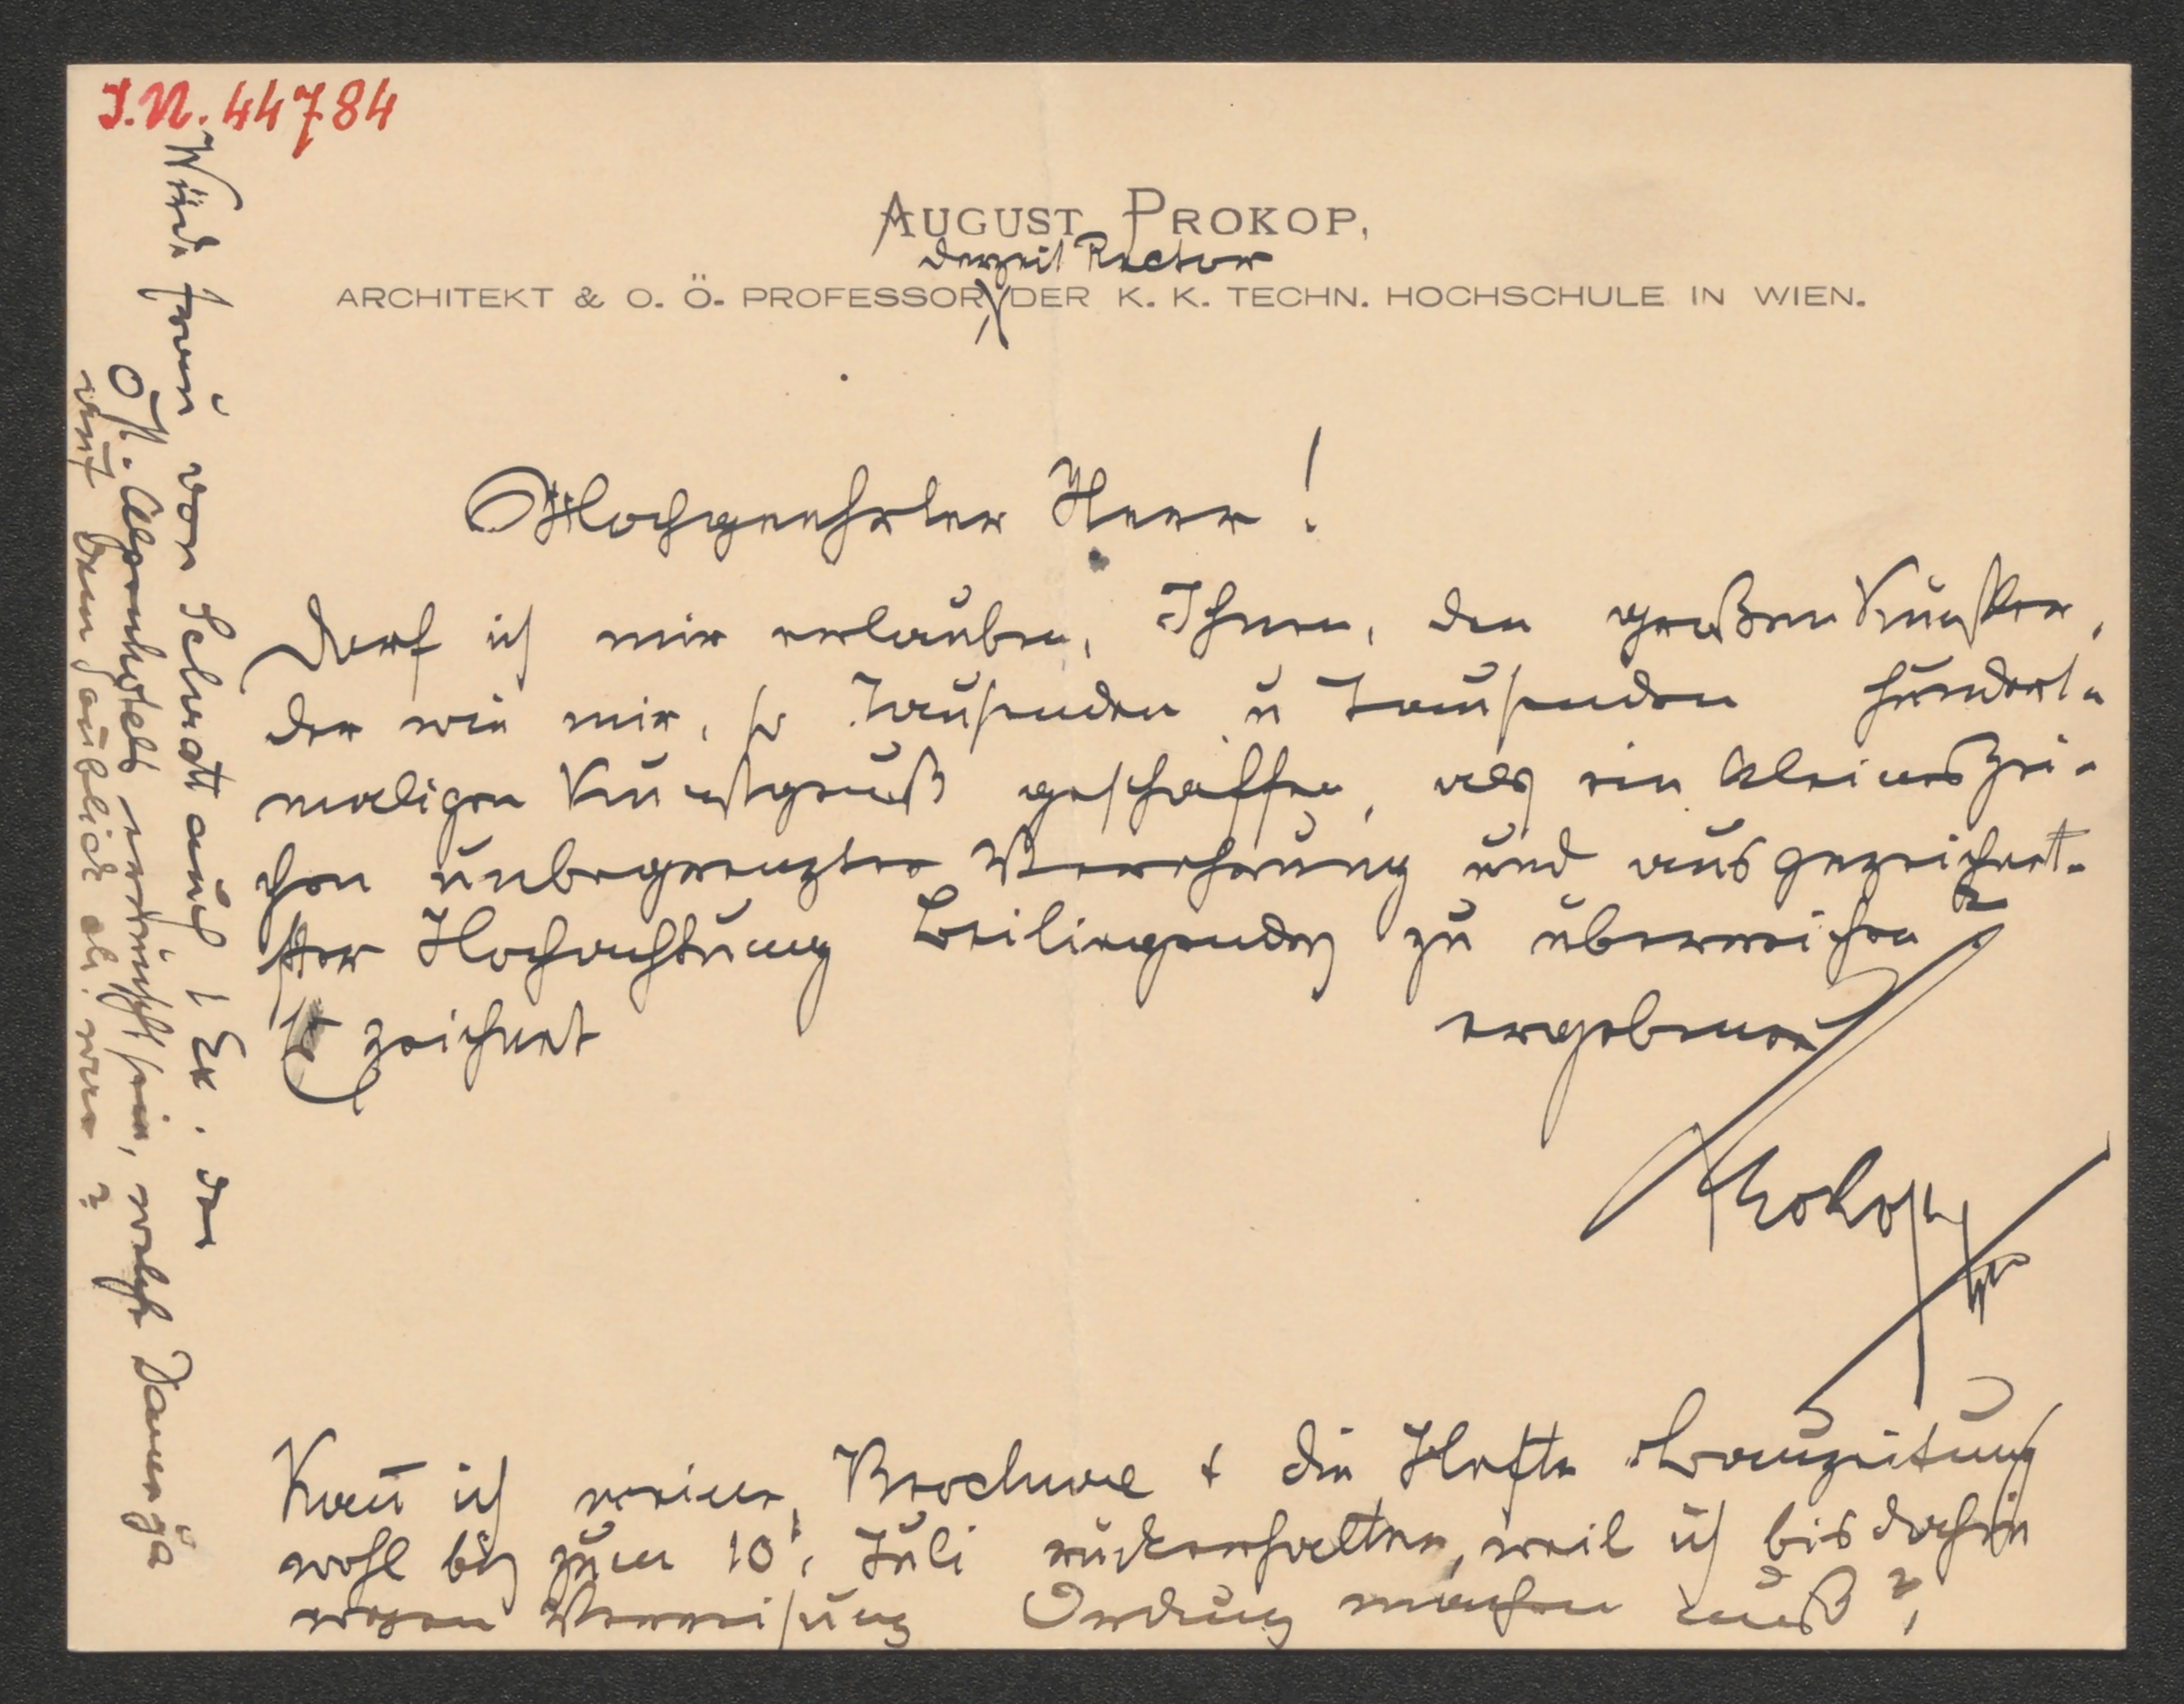 I.N. 44784
AUGUST PROKOP,
derzeit Rector
ARCHITEKT & O. Ö. PROFESSOR DER K. K. TECHN. HOCHSCHULE IN WIEN.
Hochgeehrter Herr!
Darf ich mir erlauben, Ihnen, den großen Künstler,
der wie mir, so Tausenden u Tausenden hundert-
maligen Kunstgenuß geschaffen, als ein kleines Zei-
chen unbegrenzter Verehrung und ausgezeichnet-
ster Hochachtung Beiliegendes zu überreichen
zeichnet ergebenst
Prokop
Kann ich meine Brochure + die Hefte Bauzeitung
wohl bis zum 10t. Juli rückerhalten, weil ich bis dahin
wegen Verreisung Ordnung machen muß?
Würde Frau von Schratt auch 1 Ex. der
Öst. Alpenhotels erwünscht sein, welche Dame ja
auch